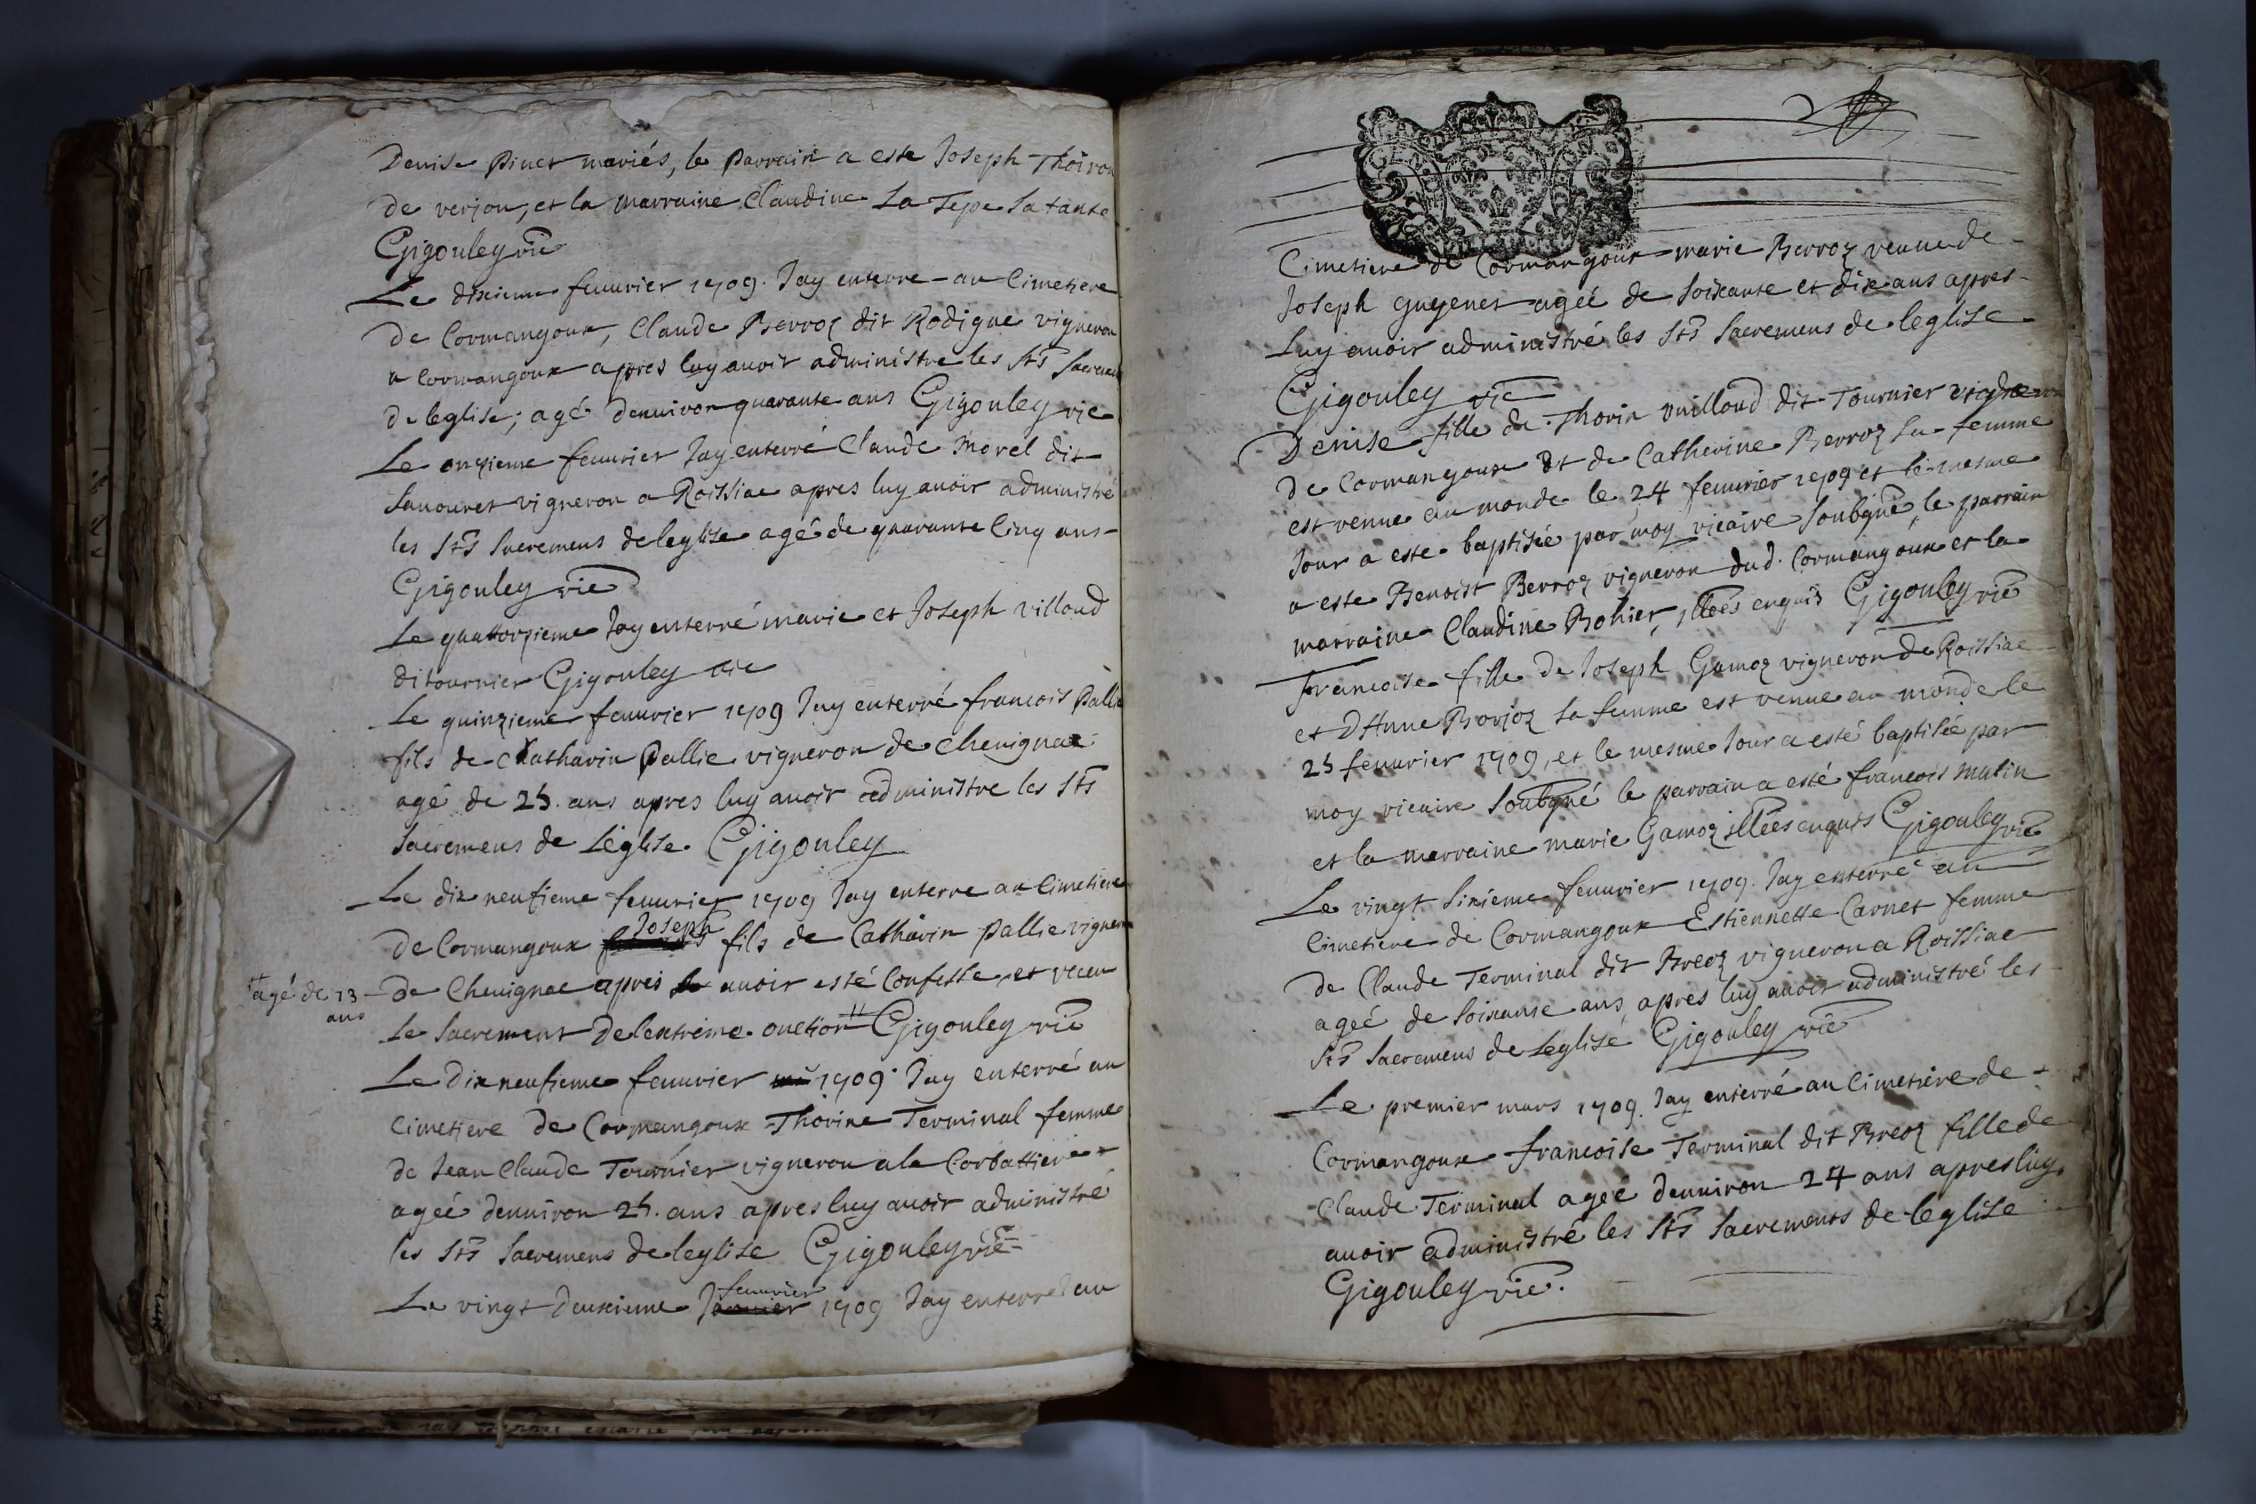 Denise Pinet mariés, le parrain a este Joseph Thoiron
de verjon, et la marraine Claudine La Tepe sa tante
Gigouley vic
Le dixieme feuurier 1709. Jay enterre au Cimetiere
de Cormangoux, Claude Berroz dit Rodigue vigneron
a Cormangoux apres luy auoir administre les Sts Sacremen
de leglise; agé denuiron quarante ans Gigouley vic
Le onzieme feuurier Jay enterré Claude Morel dit
Sauouret vigneron a Roissiac apres luy auoir administré
les Sts Sacremens de leglise agé de quarante Cinq ans
Gigouley vic
Le quattorzieme Jay enterré marie et Joseph villoud
dit tournier Gigouley vic
Le quinzieme feuurier 1709 Jay enterré francois Pallie
fils de Catharin Pallie vigneron de cheuignac
agé de 25. ans apres luy auoir administre les Sts
Sacremens de Léglise. Gigouley
Le dix neufieme feuurier 1709 Jay enterre au Cimetiere
Joseph
de Cormangoux fils de Catharin Pallie vigneron
agé de 13 ans
de Cheuignac apres auoir esté Confesse, et receu
Le Sacrement de lextreme onction Gigouley vic
Le dix neufieme feuurier 1709. Jay enterré au
Cimetiere de Cormangoux Thorine Terminal femme
de Jean Claude Tournier vigneron a la Corbattiere
agée denuiron 25. ans apres luy auoir administré
les Sts Sacremens de leglise Gigouley vic
feuurier
Le vingt deuxieme Januier 1709 Jay enterré au
Cimetiere de Cormangoux marie Berroz veuue de
Joseph guyenet agée de Soixante et dix ans apres
Luy auoir administré les Sts Sacremens de leglise
Gigouley vic
Denise fille de Thorin vuilloud dit Tournier vigneron
de Cormangoux et de Catherine Berroz sa femme
est venue au monde le 24 feuurier 1709 et le mesme
Jour a este baptisée par moy vicaire Soubgné, le parrain
a este Benoist Berroz vigneron dud. Cormangoux et la
marraine Claudine Bohier, illées enquis Gigouley vic
Francoise fille de Joseph Gamoz vigneron de Roissiac
et D'Anne Borjoz sa femme est venue au monde le
25 feuurier 1709, et le mesme Jour a esté baptisée par
moy vicaire Soubgné le parrain a esté francois Matin
et la marraine marie Gamoz illées enquis Gigouley vic
Le vingt Sixieme feuurier 1709. Jay enterré au
Cimetiere de Cormangoux Estiennette Carnet femme
de Claude Terminal dit Breoz vigneron a Roissiac
agée de Soixante ans, apres luy auoir administré les
Sts Sacremens de Leglise Gigouley vic
Le premier mars 1709. Jay enterré au Cimetiere de
Cormangoux francoise Terminal dit Breoz fille de
Claude Terminal agée denuiron 24 ans apres luy
auoir administré les Sts Sacremens de leglise
Gigouley vic.